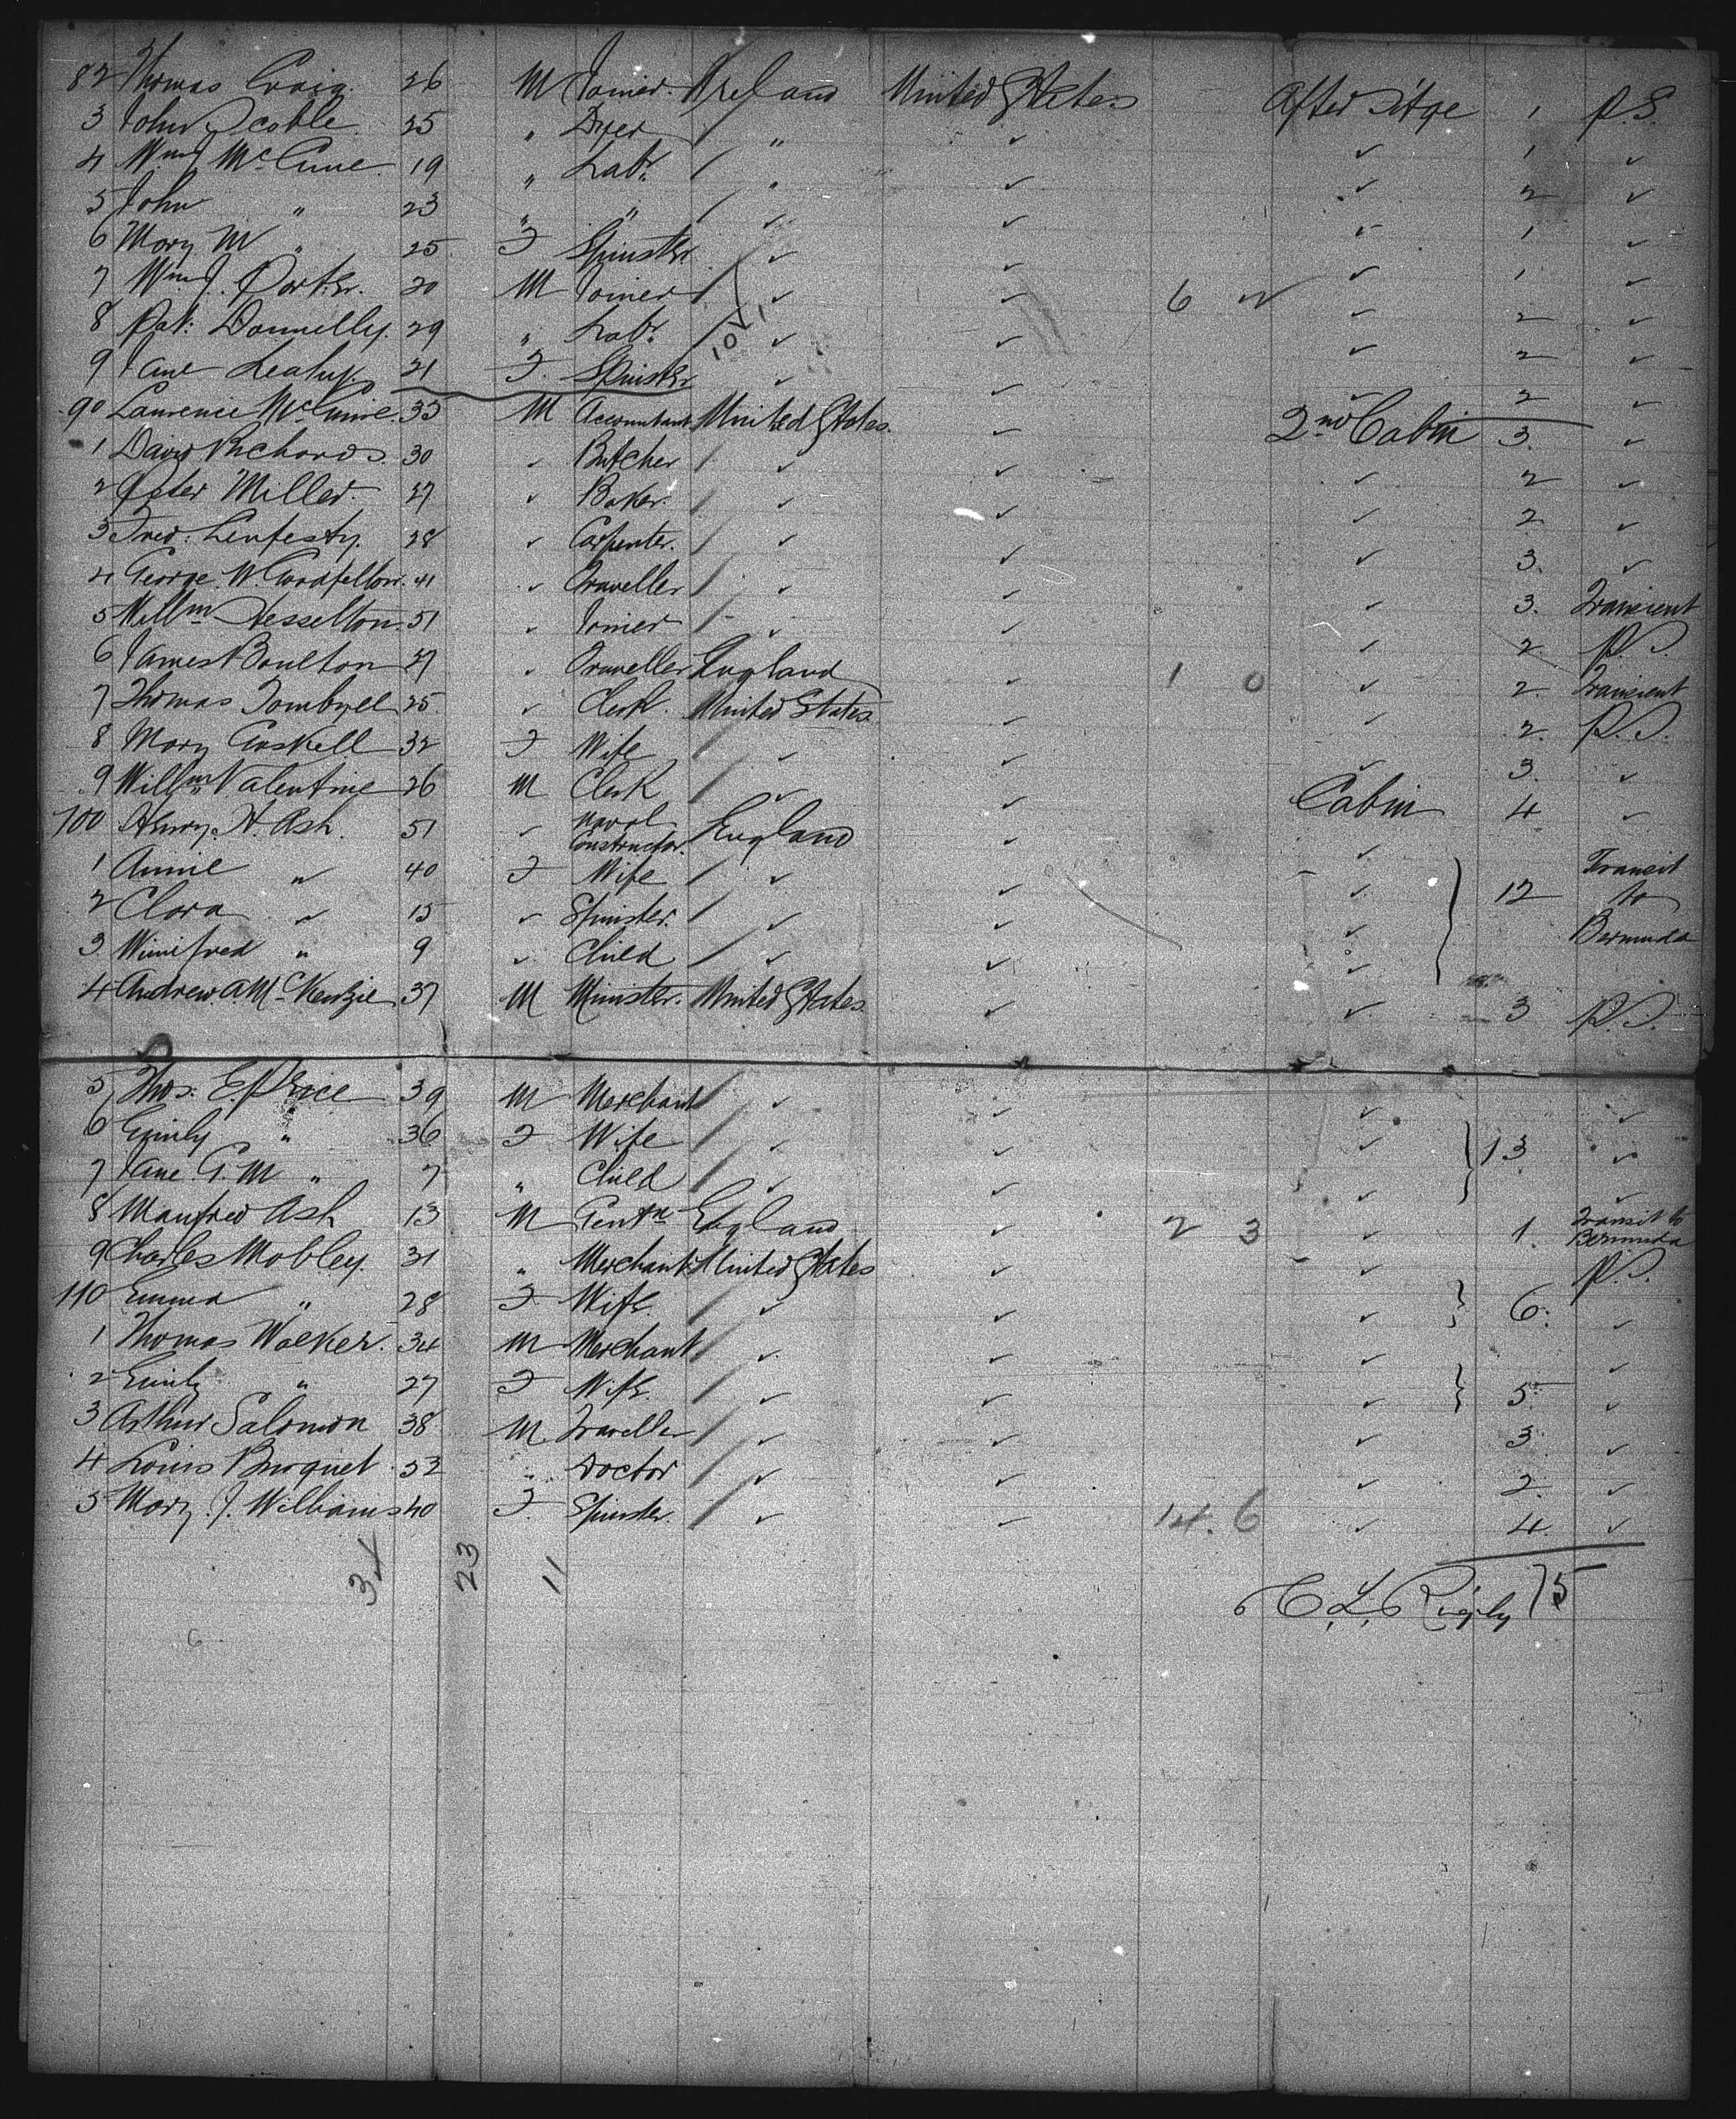 82 Thomas Craig. 26 M Joiner. Ireland United States After St'ge 1 P.S.
3 John Scoble. 25 " Dyer " ✓ ✓ 1 ✓
4 Wm J McCune. 19 " Labr. " ✓ ✓ 2 ✓
5 John " 23 " " ✓ ✓ ✓ 1 ✓
6 Mary M " 25 F Spinster ✓ ✓ ✓ 1 ✓
7 Wm J. Porter. 20 M Joiner ✓ ✓ 6 2 ✓ 2 ✓
8 Pat: Donnelly. 29 " Labr. ✓ ✓ ✓ 2 ✓
9 Jane Leahy. 21 F. Spinster ✓ ✓ ✓ 2 ✓
10
90 Laurence McGuire. 35 M Accountant United States. ✓ 2nd Cabin 3. ✓
1 David Richards. 30 ✓ Butcher ✓ ✓ ✓ 2 ✓
2 Peter Miller. 27 ✓ Baker. ✓ ✓ ✓ 2. ✓
3 Fred: Lenfesty. 28 ✓ Carpenter. ✓ ✓ ✓ 3. ✓
4 George. W. Goodfellow. 41 ✓ Traveller ✓ ✓ ✓ 3. Transient
5 Willm Hesselton. 51 ✓ Joiner ✓ ✓ ✓ 2 P.S.
6 James Boulton 27 ✓ Traveller England ✓ 1 0 ✓ 2. Transient
7 Thomas Tombyll 25. ✓ Clerk. United States ✓ ✓ 2. P.S.
8 Mary Gaskell 32 F Wife ✓ ✓ ✓ 3. ✓
9 Willm Valentine 26 M Clerk ✓ ✓ Cabin 4 ✓
100 Henry. H. Ash. 51 ✓ Naval Constructor. England ✓ ✓
1 Annie " 40 F Wife ✓ ✓ ✓ 12 Transit to Bermuda
2 Clara ✓ 15 ✓ Spinster. ✓ ✓ ✓
3 Winifred " 9 ✓ Child ✓ ✓ ✓
4 Andrew. A. McKenzie 37 M Minister. United States. ✓ ✓ 3 P.S.
5 Thos: E. Price 39 M Merchant ✓ ✓ ✓ ✓
6 Emily " 36 F Wife ✓ ✓ ✓ 13 ✓
7 Jane. G. M " 7 " Child ✓ ✓ ✓ ✓
8 Manfred Ash 13 M Gentn England ✓ 2 3 ✓ 1. Transit to Bermuda
9 Charles Mobley. 31 " Merchant United States ✓ ✓ P.S.
110 Emma " 28 F. Wife. ✓ ✓ ✓ 6. ✓
1 Thomas Walker. 34 M Merchant. ✓ ✓ ✓ ✓
2 Emily " 27 F Wife. ✓ ✓ ✓ 5. ✓
3 Arthur Salomon 38 M. Traveller ✓ ✓ ✓ 3 ✓
4 Louis 52 " Doctor ✓ ✓ ✓ 2. ✓
5 Mary. J. Williams 40 F. Spinster. ✓ ✓ 14. 6 ✓ 4. ✓
34 23 11
C. L. Rigby 75